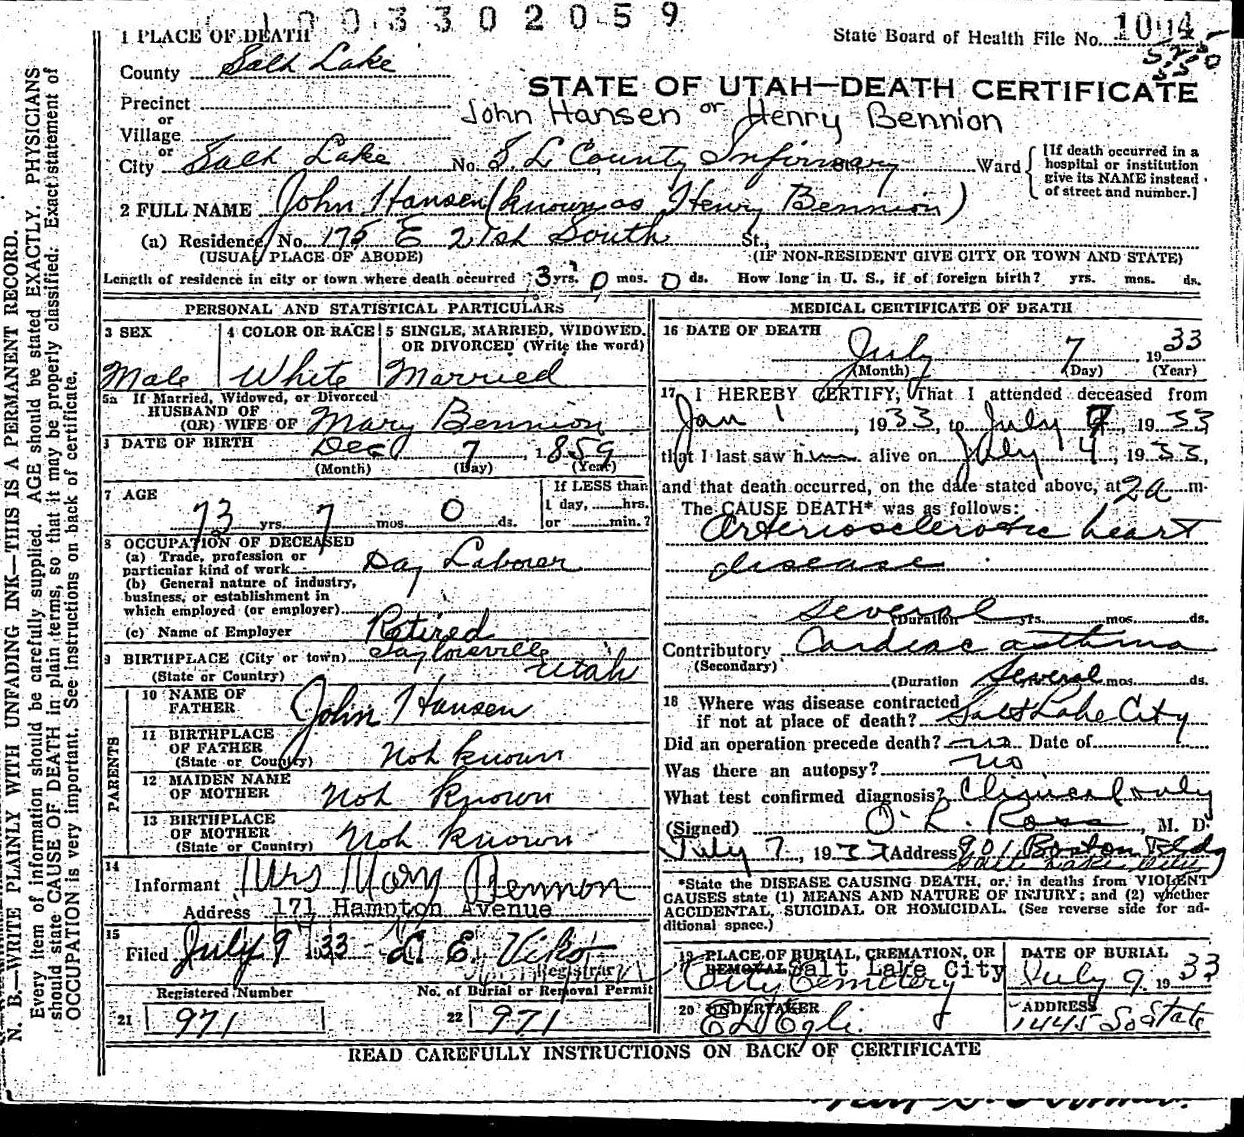 1003302059
1 PLACE OF DEATH
State Board of Health File No. 1004
County Salt Lake
STATE OF UTAH—DEATH CERTIFICATE
Precinct
or
John Hansen or Henry Bennion
Village
or
City Salt Lake No. S. L. County Infirmary Ward
[If death occurred in a
hospital or institution
give its NAME instead
of street and number.]
2 FULL NAME John Hansen (known as Henry Bennion)
(a) Residence, No. 175 E 21st South St.,
(USUAL PLACE OF ABODE) (IF NON-RESIDENT GIVE CITY OR TOWN AND STATE)
Length of residence in city or town where death occurred 3 yrs. 0 mos. 0 ds. How long in U. S., if of foreign birth? yrs. mos. ds.
PERSONAL AND STATISTICAL PARTICULARS
3 SEX
Male
4 COLOR OR RACE
White
5 SINGLE, MARRIED, WIDOWED,
OR DIVORCED (Write the word)
Married
5a If Married, Widowed, or Divorced
HUSBAND OF
(OR) WIFE OF Mary Bennion
6 DATE OF BIRTH
Dec 7, 1859
(Month) (Day) (Year)
7 AGE
73 yrs. 7 mos. 0 ds.
If LESS than
1 day, hrs.
or min.?
8 OCCUPATION OF DECEASED
(a) Trade, profession or
particular kind of work Day Laborer
(b) General nature of industry,
business, or establishment in
which employed (or employer)
(c) Name of Employer Retired
9 BIRTHPLACE (City or town) Taylorsville
(State or Country) Utah
PARENTS
10 NAME OF
FATHER John Hansen
11 BIRTHPLACE
OF FATHER
(State or Country) Not known
12 MAIDEN NAME
OF MOTHER Not known
13 BIRTHPLACE
OF MOTHER
(State or Country) Not known
14
Informant Mrs Mary Bennion
Address 171 Hampton Avenue
15
Filed July 9 1933 Registrar
Registered Number
21 971
No. of Burial or Removal Permit
22 971
MEDICAL CERTIFICATE OF DEATH
16 DATE OF DEATH
July 7, 1933
(Month) (Day) (Year)
17 I HEREBY CERTIFY, That I attended deceased from
Jan 1, 1933, to July 7, 1933
that I last saw him alive on July 4, 1933,
and that death occurred, on the date stated above, at 2a m.
The CAUSE DEATH* was as follows:
Arteriosclerotic heart
disease
several (Duration) yrs. mos. ds.
Contributory Cardiac asthma
(Secondary)
(Duration Several yrs. mos. ds.
18 Where was disease contracted
if not at place of death? Salt Lake City
Did an operation precede death? no Date of
Was there an autopsy? no
What test confirmed diagnosis? Clinical only
(Signed) O. R. Ross, M. D.
July 7, 1933 Address 901 Boston Bldg
Salt Lake City
*State the DISEASE CAUSING DEATH, or, in deaths from VIOLENT
CAUSES state (1) MEANS AND NATURE OF INJURY; and (2) whether
ACCIDENTAL, SUICIDAL OR HOMICIDAL. (See reverse side for ad-
ditional space.)
19 PLACE OF BURIAL, CREMATION, OR
REMOVAL Salt Lake City
City Cemetery
DATE OF BURIAL
July 9 1933
20 UNDERTAKER
E L Egli
ADDRESS
1445 So State
READ CAREFULLY INSTRUCTIONS ON BACK OF CERTIFICATE
N. B.—WRITE PLAINLY WITH UNFADING INK—THIS IS A PERMANENT RECORD.
Every item of information should be carefully supplied. AGE should be stated EXACTLY. PHYSICIANS
should state CAUSE OF DEATH in plain terms, so that it may be properly classified. Exact statement of
OCCUPATION is very important. See instructions on back of certificate.